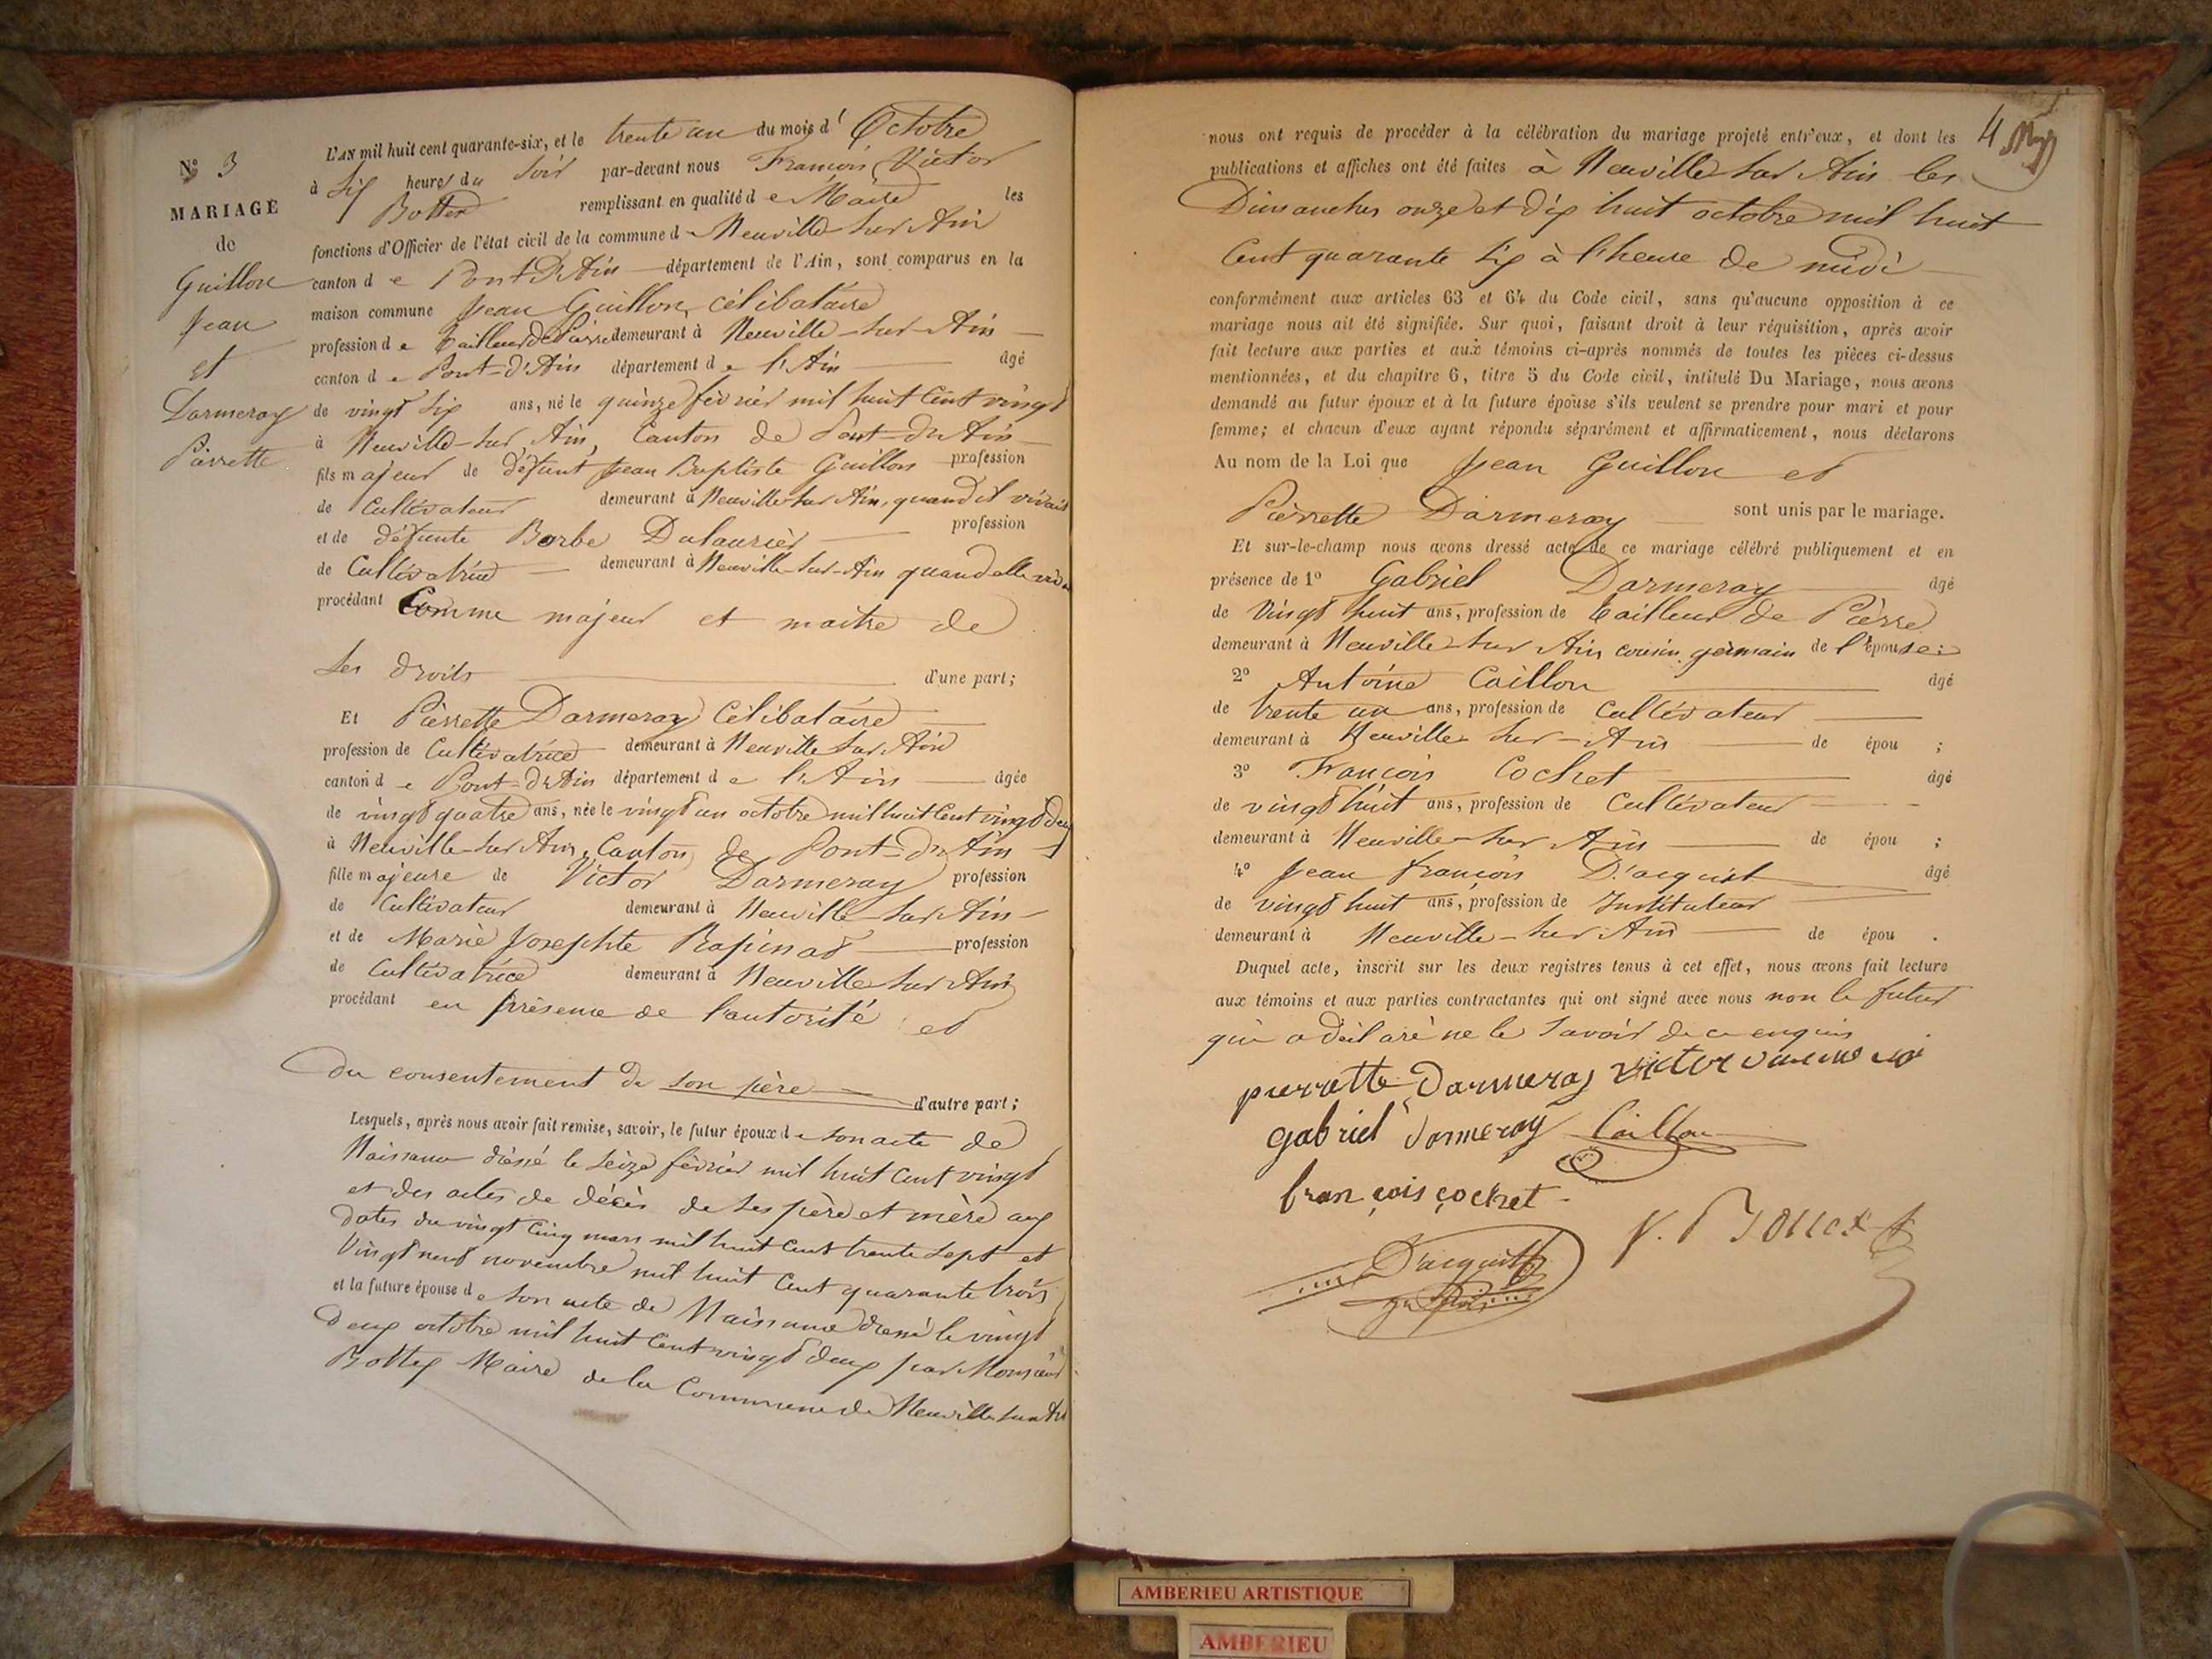 N° 3
MARIAGE
de
Guillon
Jean
et
Darmeray
Pierrette
L'AN mil huit cent quarante-six, et le trente un du mois d' Octobre
à six heures du soir par-devant nous François Victor
Bottex remplissant en qualité de Maire les
fonctions d'Officier de l'état civil de la commune d Neuville sur Ain
canton de Pont-d'Ain département de l'Ain, sont comparus en la
maison commune Jean Guillon, célibataire
profession de Tailleur de Pierre demeurant à Neuville-sur-Ain
canton de Pont-d'Ain département de l'Ain âgé
de vingt six ans, né le quinze février mil huit cent vingt
à Neuville-sur Ain, Canton de Pont-d'Ain
fils majeur de défunt Jean Baptiste Guillon profession
de Cultivateur demeurant à Neuville sur Ain, quand il vivait
et de défunte Barbe Dulaurier profession
de Cultivatrice demeurant à Neuville-sur-Ain quand elle
procédant Comme majeur et maitre de
ses droits d'une part;
Et Pierrette Darmeray Célibataire
profession de Cultivatrice demeurant à Neuville sur Ain
canton de Pont-d'Ain département de l'Ain âgée
de vingt quatre ans, née le vingt un octobre mil huit cent vingt deux
à Neuville-sur Ain, Canton de Pont-d'Ain
fille majeure de Victor Darmeray profession
de Cultivateur demeurant à Neuville-sur Ain
et de Marie Josephte Rapinat profession
de Cultivatrice demeurant à Neuville sur Ain
procédant en présence de l'autorité et
du consentement de son père d'autre part;
Lesquels, après nous avoir fait remise, savoir, le futur époux de son acte de
Naissance dressé le seize février mil huit cent vingt
et des actes de décès de ses père et mère aux
dates du vingt cinq mars mil huit cent trente sept et
vingt neuf novembre mil huit cent quarante trois
et la future épouse de son acte de Naissance dressé le vingt
deux octobre mil huit cent vingt deux par Monsieur
Bottex Maire de la Commune de Neuville sur Ain
4
nous ont requis de procéder à la célébration du mariage projeté entr'eux, et dont les
publications et affiches ont été faites à Neuville sur Ain les
Dimanches onze et dix huit octobre mil huit
Cent quarante six à l'heure de midi
conformément aux articles 63 et 64 du Code civil, sans qu'aucune opposition à ce
mariage nous ait été signifiée. Sur quoi, faisant droit à leur réquisition, après avoir
fait lecture aux parties et aux témoins ci-après nommés de toutes les pièces ci-dessus
mentionnées, et du chapitre 6, titre 5 du Code civil, intitulé Du Mariage, nous avons
demandé au futur époux et à la future épouse s'ils veulent se prendre pour mari et pour
femme; et chacun d'eux ayant répondu séparément et affirmativement, nous déclarons
Au nom de la Loi que Jean Guillon et
Pierrette Darmeray sont unis par le mariage.
Et sur-le-champ nous avons dressé acte de ce mariage célébré publiquement et en
présence de 1° Gabriel Darmeray âgé
de vingt huit ans, profession de tailleur de Pierre
demeurant à Neuville sur Ain cousin germain de l'épouse;
2° Antoine Caillon âgé
de trente un ans, profession de Cultivateur
demeurant à Neuville sur-Ain de épou ;
3° François Cochet âgé
de vingt huit ans, profession de Cultivateur
demeurant à Neuville-sur Ain de épou ;
4° Jean François D'acquist âgé
de vingt huit ans, profession de Instituteur
demeurant à Neuville-sur Ain de épou .
Duquel acte, inscrit sur les deux registres tenus à cet effet, nous avons fait lecture
aux témoins et aux parties contractantes qui ont signé avec nous non le futur
qui a déclaré ne le savoir de ce enquis
pierrette Darmeray victor
gabriel Darmeray Caillon
françois cochet
D'acquist
V. Bottex
AMBERIEU ARTISTIQUE
AMBERIEU